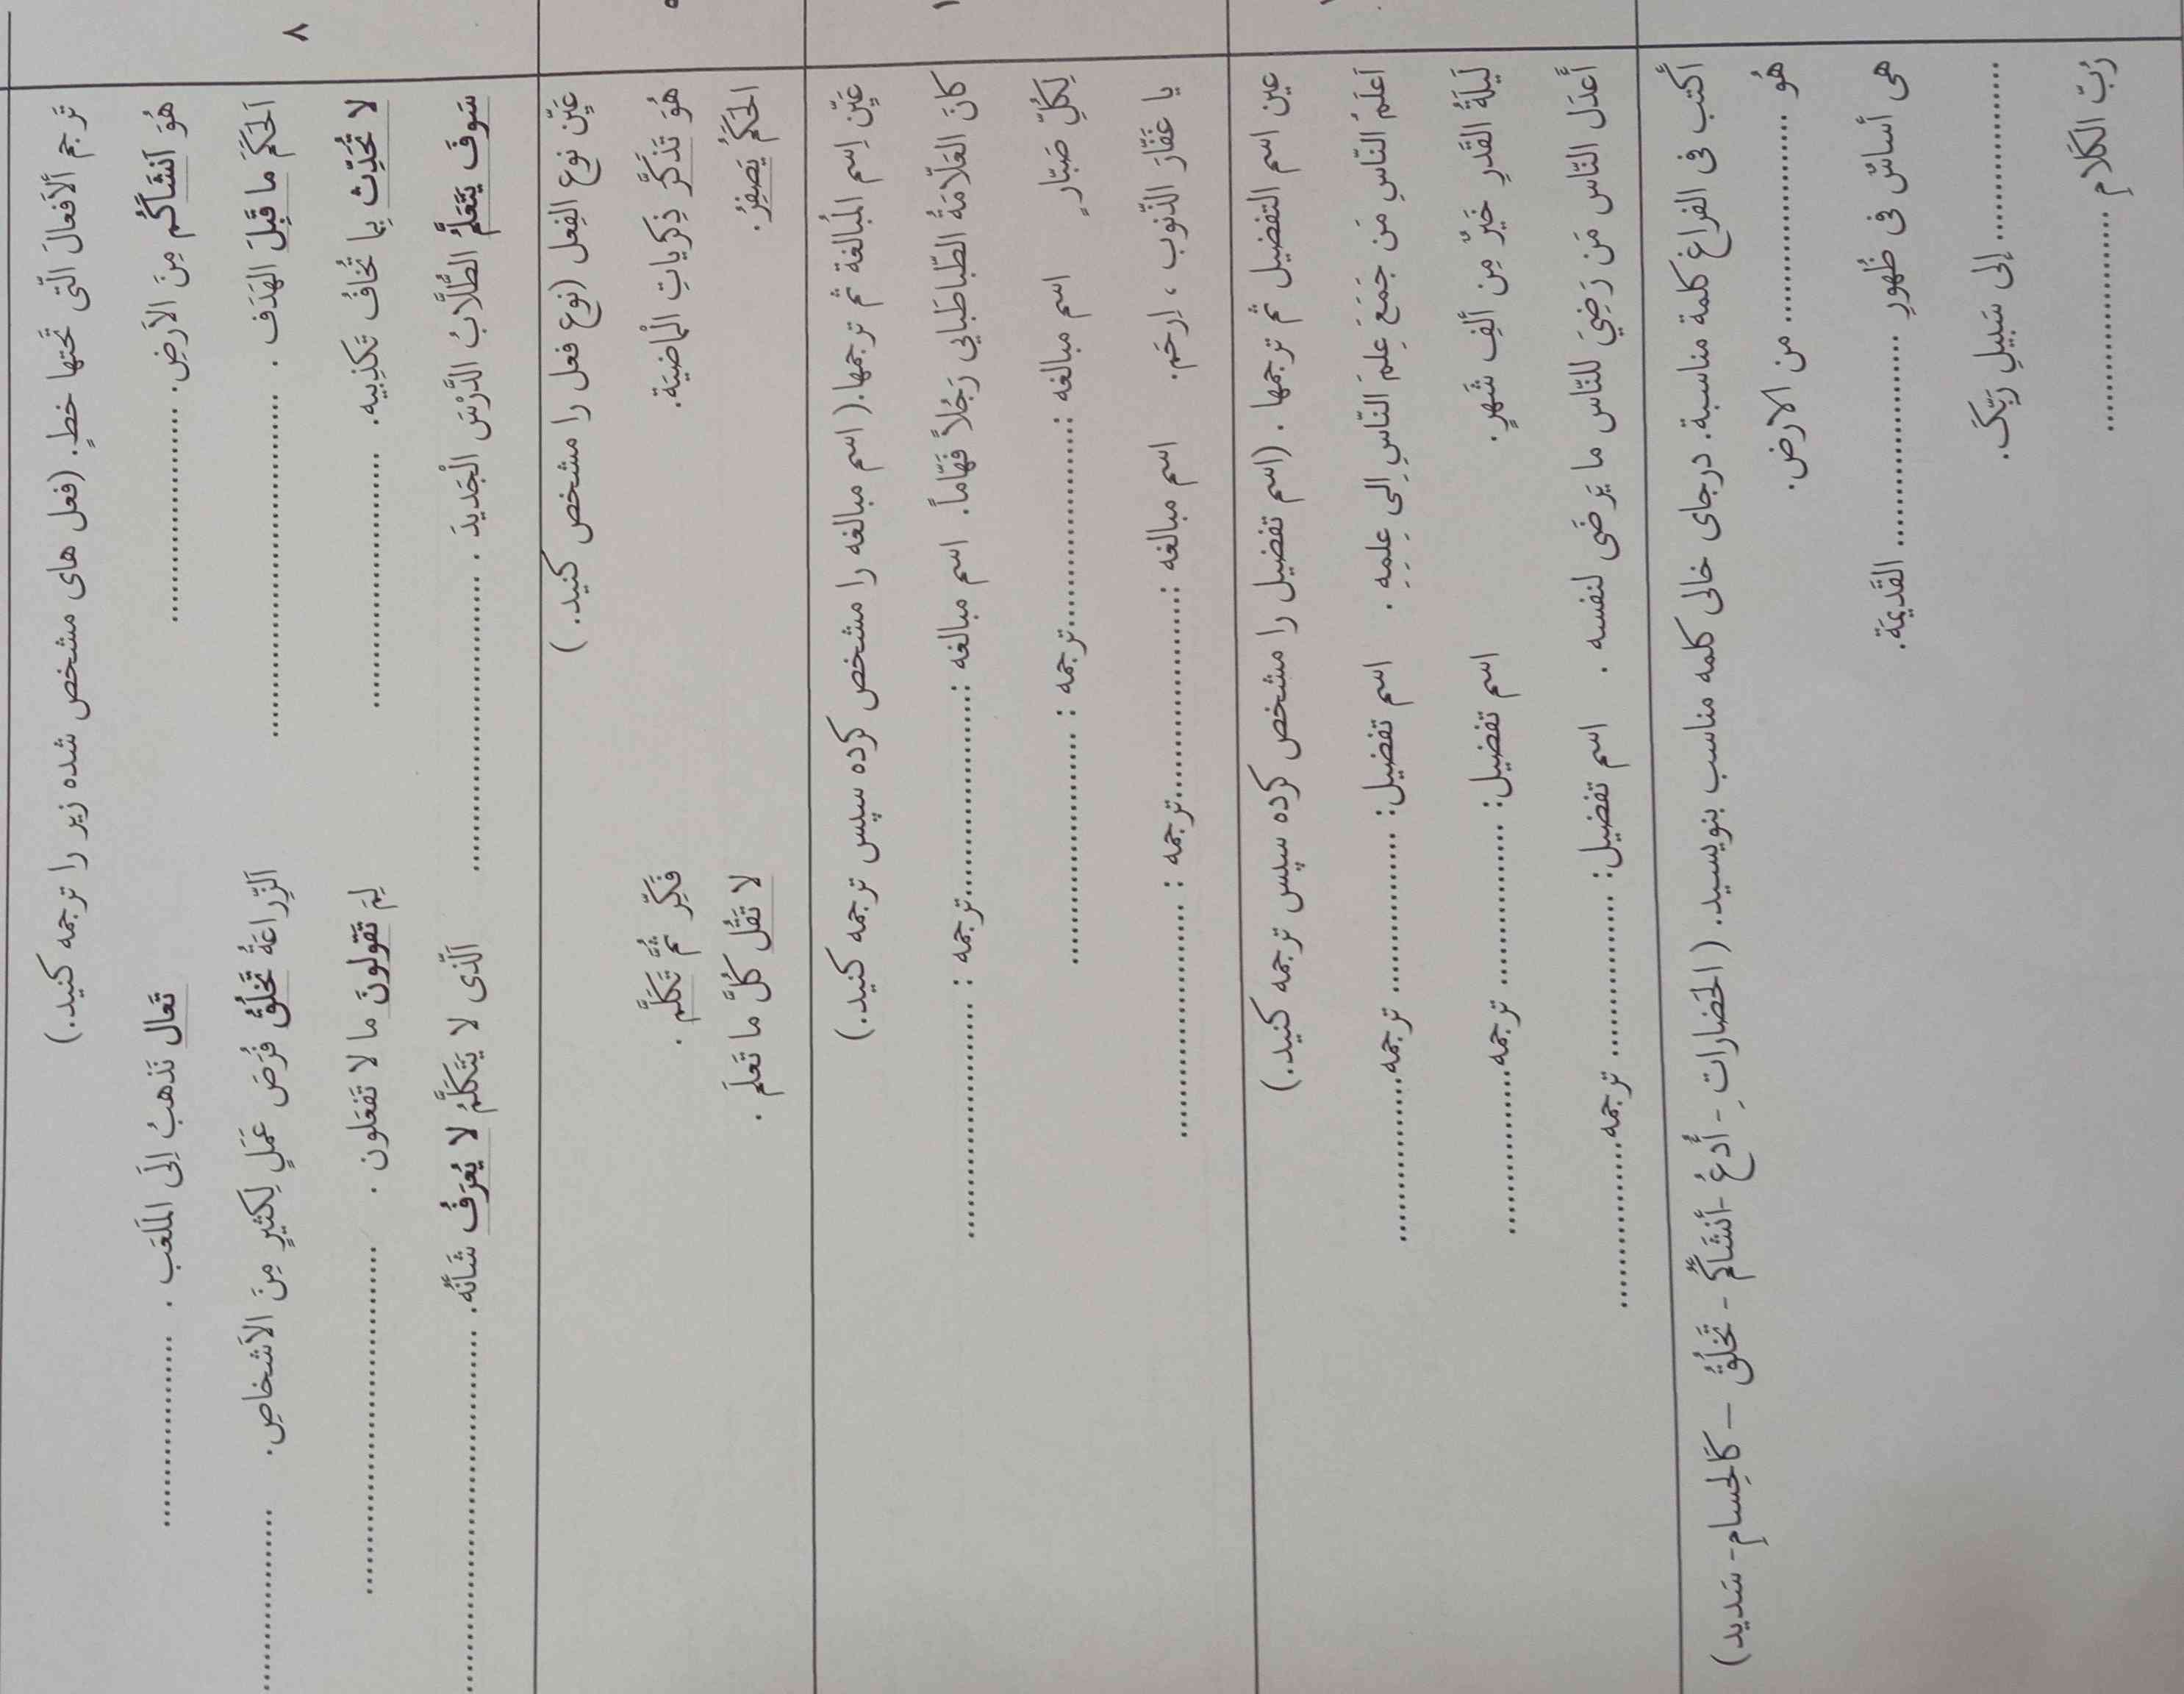 ترجم ألافعالَ الّتی تَحتها خطٍ. (فعل های مشخص شده زیر را ترجمه کنید.)
هُوَ اَنشَاَکُم مِنَ الاَرضِ. .................... تَعال نَذهبُ اِلَی المَلعَب . ....................
۸
اَلحَکَمُ ما قَبِلَ الهَدَف . .............................. اَلزِّراعَةُ تَخلُقُ فُرَصَ عَمَلٍ لِکثیرٍ مِنَ الاَشخاصِ. ....................
لا تُحَدِّث بِما تَخافُ تَکذِبیه. ........................ لِمَ تَقولونَ ما لا تَفعَلون . ..............................
سَوفَ یَتَعَلَّمُ الطُّلّابُ الدَّرْسَ الْجَدیدَ . .............................. اَلّذی لا یَتَکَلَّمُ لا یُعرَفُ شَأنُه. ..............................
عَیِّن نوع الفِعل (نوع فعل را مشخص کنید. )
هُوَ تَذَکَّرَ ذِکرِیاتِ الْماضیَة. فَکِّر ثُمَّ تَکَلَّم .
الحَکَمُ یَصفِرُ. لا تَقُل کُلَّ ما تَعلَم .
عَیِّن اِسم المُبالغة ثم ترجمها.( اسم مبالغه را مشخص کرده سپس ترجمه کنید.)
کانَ العَلّامَةُ الطّباطَبایی رَجُلاً فَهّاماً. اسم مبالغه :....................ترجمه : ....................
لِکلِّ صَبّارٍ اسم مبالغه :....................ترجمه : ....................
یا غَفّارَ الذّنوب ، اِرحَم. اسم مبالغه :....................ترجمه : ....................
عین اسم التفضیل ثم ترجمها . (اسم تفضیل را مشخص کرده سپس ترجمه کنید.)
اَعلَمُ النّاسِ مَن جَمَعَ عِلمَ النّاسِ اِلی عِلمِهِ . اسم تفضیل: ................ ترجمه................
لَیلَةُ القَدرِ خَیرٌ مِن ألفِ شَهرٍ. اسم تفضیل: ................ ترجمه................
أعدَل النّاس مَن رَضِیَ للنّاس ما یَرضَی لنفسه . اسم تفضیل: ................ ترجمه................
أکتب فی الفراغ کلمة مناسبة. درجای خالی کلمه مناسب بنویسید. (الحَضاراتِ - أدعُ -أنشَاَکُم - تَخلُقُ – کَالحِسامِ- سَدید)
هُو .................... من الارض.
هی أساسٌ فی ظُهورِ .................... القَدیمَة.
.................... إلی سَبیلِ رَبِّکَ.
رُبّ الکَلامِ ....................